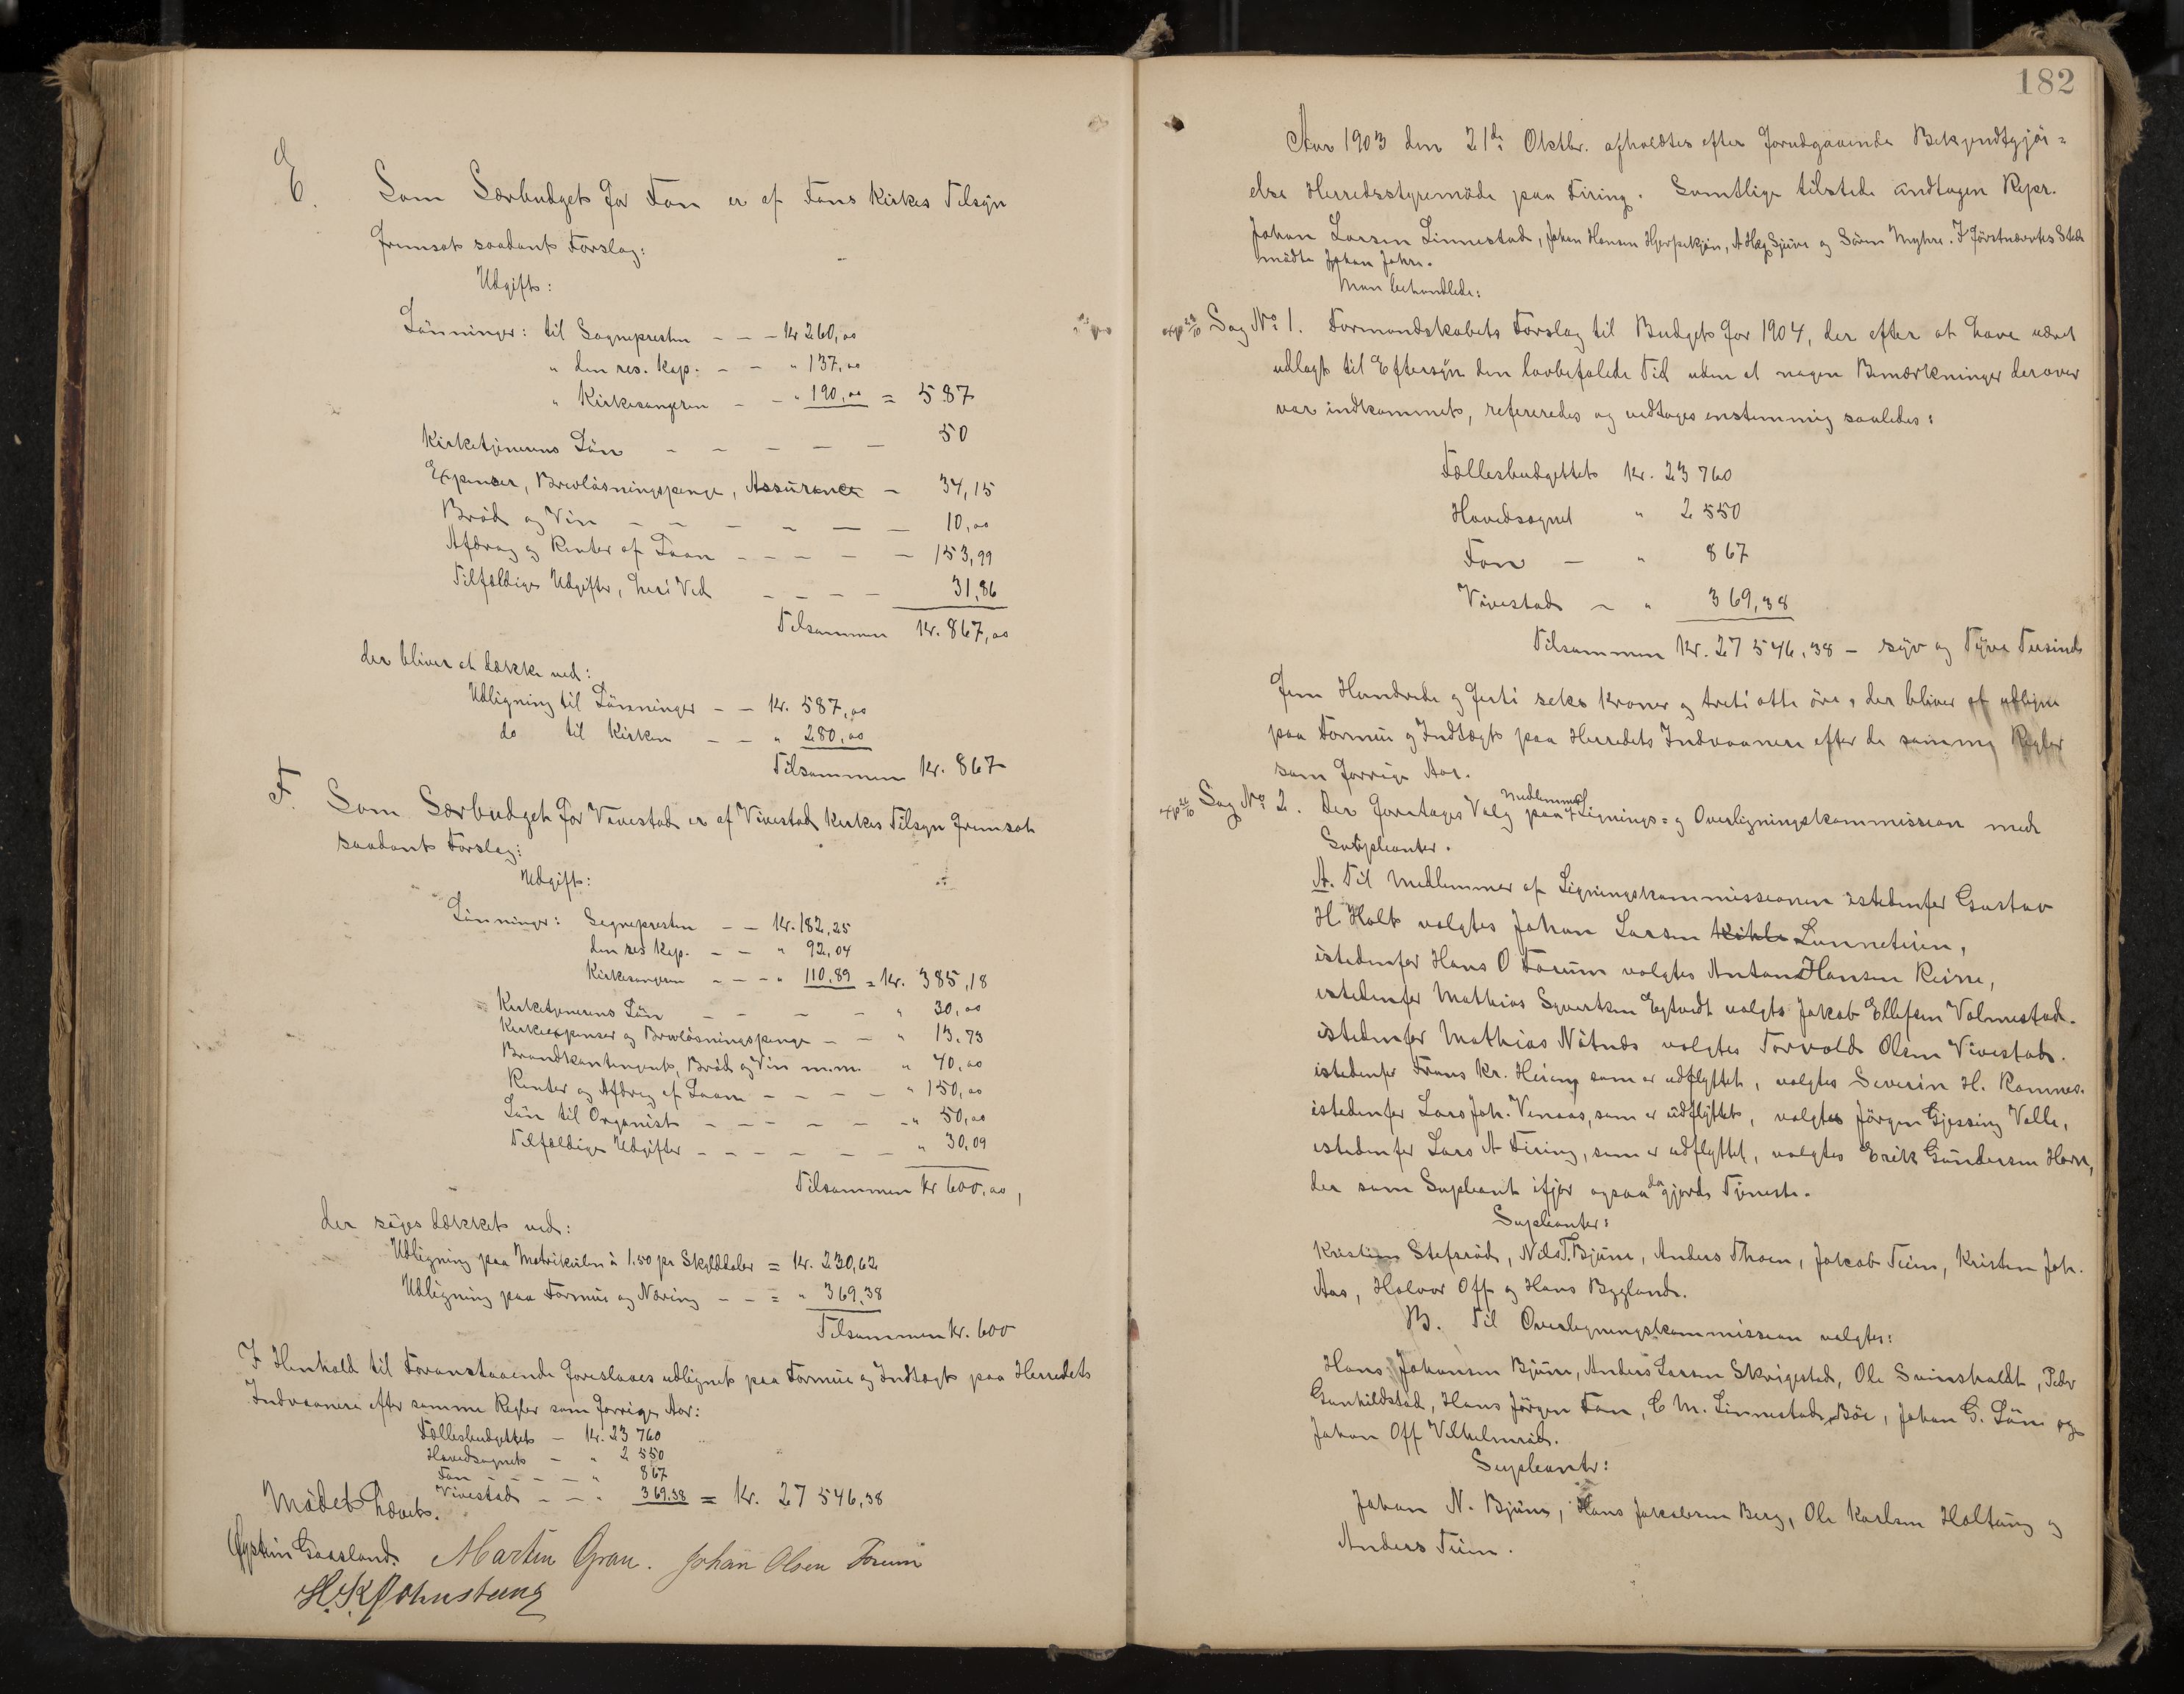 E. Som Særbudget for Fon er af Fons Kirkes Tilsyn
fremsat saadant Forslag:
Udgift:
Lönninger: til Sognepresten – – – Kr 260,00
" den res. Kap. – – " 137,00
" Kirkesangeren – – " 190,00 = 587
Kirketjenerens Lön – – – – – 50
Expenser, Brevløsningspenge, Assurance – 34,15
Bröd og Vin – – – – – – 10,00
Afdrag og Renter af Laan – – – – – 153,99
Tilfældige Udgifter, heri Ved – – – – 31,86
Tilsammen Kr. 867,00
der bliver at dække ved:
Udligning til Lönninger – – Kr. 587,00
do til Kirken – – " 280,00
Tilsammen Kr. 867
F. Som Særbudget for Vivestad er af Vivestad Kirkes Tilsyn fremsat
saadant Forslag:
Udgift:
Lönninger: Sognepresten – – Kr. 182,25
den res Kap. – – " 92,04
Kirkesangeren – – – " 110,89 = Kr. 385,18
Kirketjenerens Lön – – – – " 30,00
Kirkeexpenser og Brevløsningspenge – – " 13,73
Brandkontingent, Bröd og Vin m.m. " 40,00
Renter og Afdrag af Laan – – – – " 150,00
Lön til Organist – – – – – " 50,00
Tilfældige Udgifter – – – – – – " 30,09
Tilsammen Kr 600,00,
der söges dækket ved:
Udligning paa Matrikulen à 1.50 pr Skylddaler = Kr. 230,62
Udligning paa Formue og Næring – – = " 369,38
Tilsammen Kr. 600
I Henhold til Foranstaaende foreslaaes udlignet paa Formue og Indtægt paa Herredets
Indvaanere efter samme Regler som forrige Aar:
Fællesbudgettet – Kr. 23 760
Hovedsognet – " 2 550
Fon – – – – " 867
Vivestad – – " 369.38 = Kr. 27 546,38
Mödet hævet.
Gaasland. Martin Gran. Johan Olsen Forum
182
Aar 1903 den 21de Oktbr. afholdtes efter forudgaaende Bekjendtgjör=
else Herredsstyremöde paa Firing. Samtlige tilstede undtagen Repr.
Johan Larsen Linnestad, Johan Hansen Hjerpekjön, A Hög Sjüve og Sören Myhre. I förstnævntes Sted
mödte Johan Jahre.
Man behandlede:
Sag No 1. Formandskabets Forslag til Budget for 1904, der efter at have været
udlagt til Eftersyn den lovbefalede Tid uden at nogen Bemærkninger derover
var indkommet, refereredes og vedtoges enstemmig saaledes:
Fællesbudgettet Kr. 23 760
Hovedsognet " 2 550
Fon – " 867
Vivestad – " 369,38
Tilsammen Kr. 27 546,38 – syv og Tyve Tusinde
fem Hundrede og firti seks Kroner og treti otte öre, der bliver at utligne
paa Formue og Indtægt paa Herredets Indvaanere efter de samme Regler
som forrige Aar.
Sag No 2. Der foretages Valg paa Medlemmer Lignings= og Overligningskommission med
Supleanter.
A. Til Medlemmer af Ligningskommissionen istedenfor Gustav
H. Holt valgtes Johan Larsen Kihle Lunneteien,
istedenfor Hans O Forum valgtes Anton Hansen Reine,
istedenfor Mathias Syvertsen Egtvedt valgts Jakob Ellefsen Valmestad.
istedenfor Mathias Nötnæs valgtes Torvald Olsen Vivestad.
istedenfor Frans Kr. Hering som er udflyttet, valgtes Severin H. Ramnes.
istedenfor Lars Joh. Venaas, som er udflyttet, valgtes Jörgen Gjessing Valle,
istedenfor Lars A Firing, som er udflyttet, valgtes Erik Gundersen Horn,
der som Supleant ifjor ogsaa da gjorde Tjeneste.
Supleanter:
Kristian Stefsröd, Nils T. Bjune, Anders Thoen, Jakob Tuin, Kristen Joh.
Aas, Halvor Off og Hans Bygland.
B. Til Overligningskommission valgtes:
Hans Johansen Bjune, Anders Larsen Skorgestad, Ole Svinsholdt, Peder
Gunhildstad, Hans Jörgen Fon, C M. Linnestad Böe, Johan G. Löne og
Johan Off Vilhelmröd.
Supleanter:
Johan N. Bjune, Hans Jakobsen Berg, Ole Karlsen Holtung og
Anders Tuin.